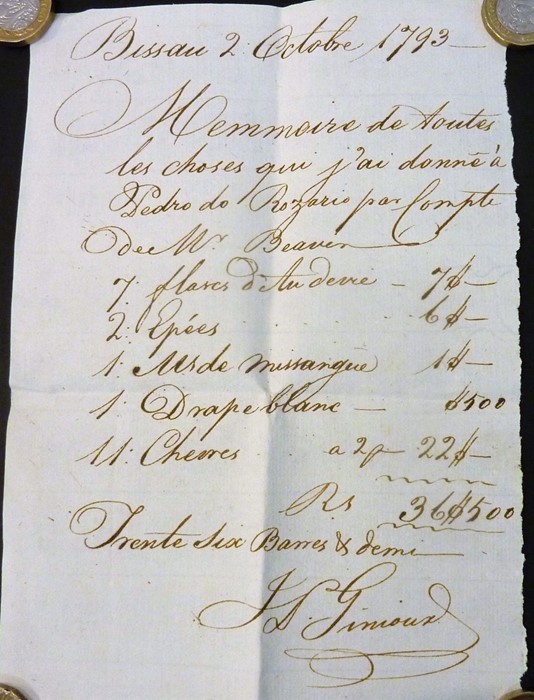 Bissau 2: Octobre 1793
Memmoire de toutes
les choses qui j'ai donné à
Pedro do Rozario par Compte
De Mr. Beaver
7: flascs d'Au devie - 7$-
2: Epées 6$-
1: Ms de missangue 1$-
1: Drape blanc - $500
11: Chevres a 2p 22$-
Rs 36$500
Trente Six Barres & demi